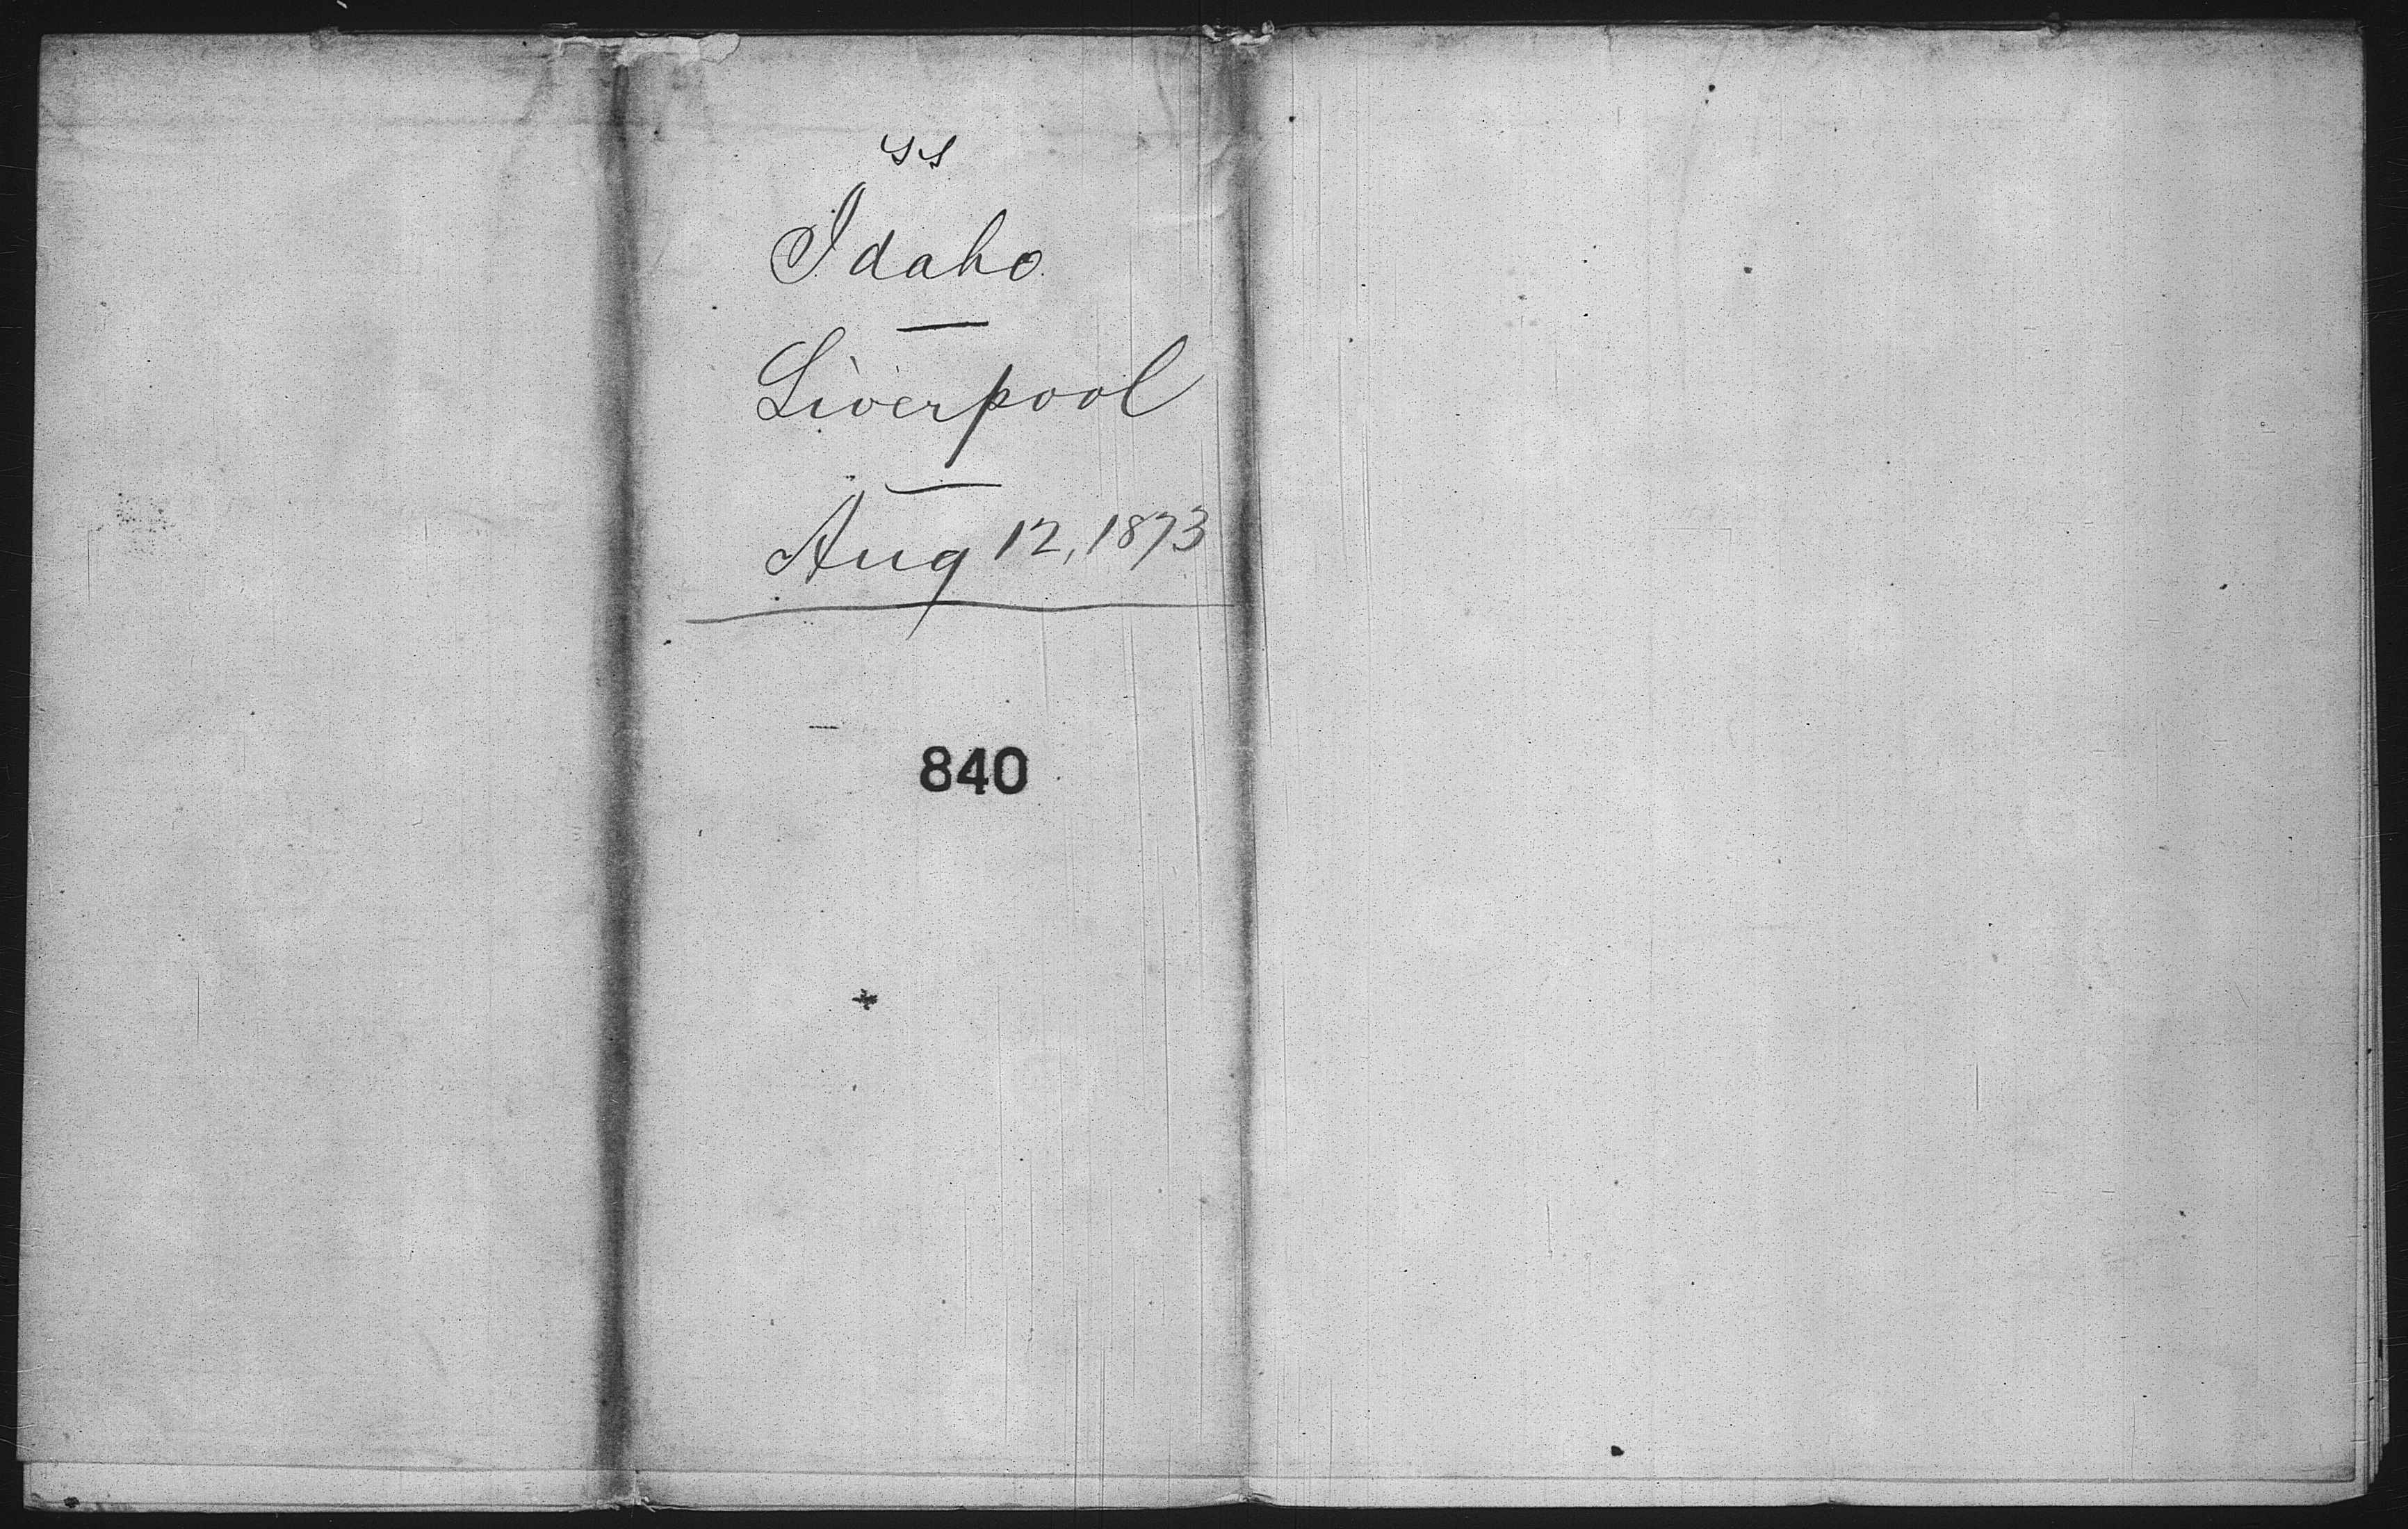 ss
Idaho
Liverpool
Aug 12, 1873
840